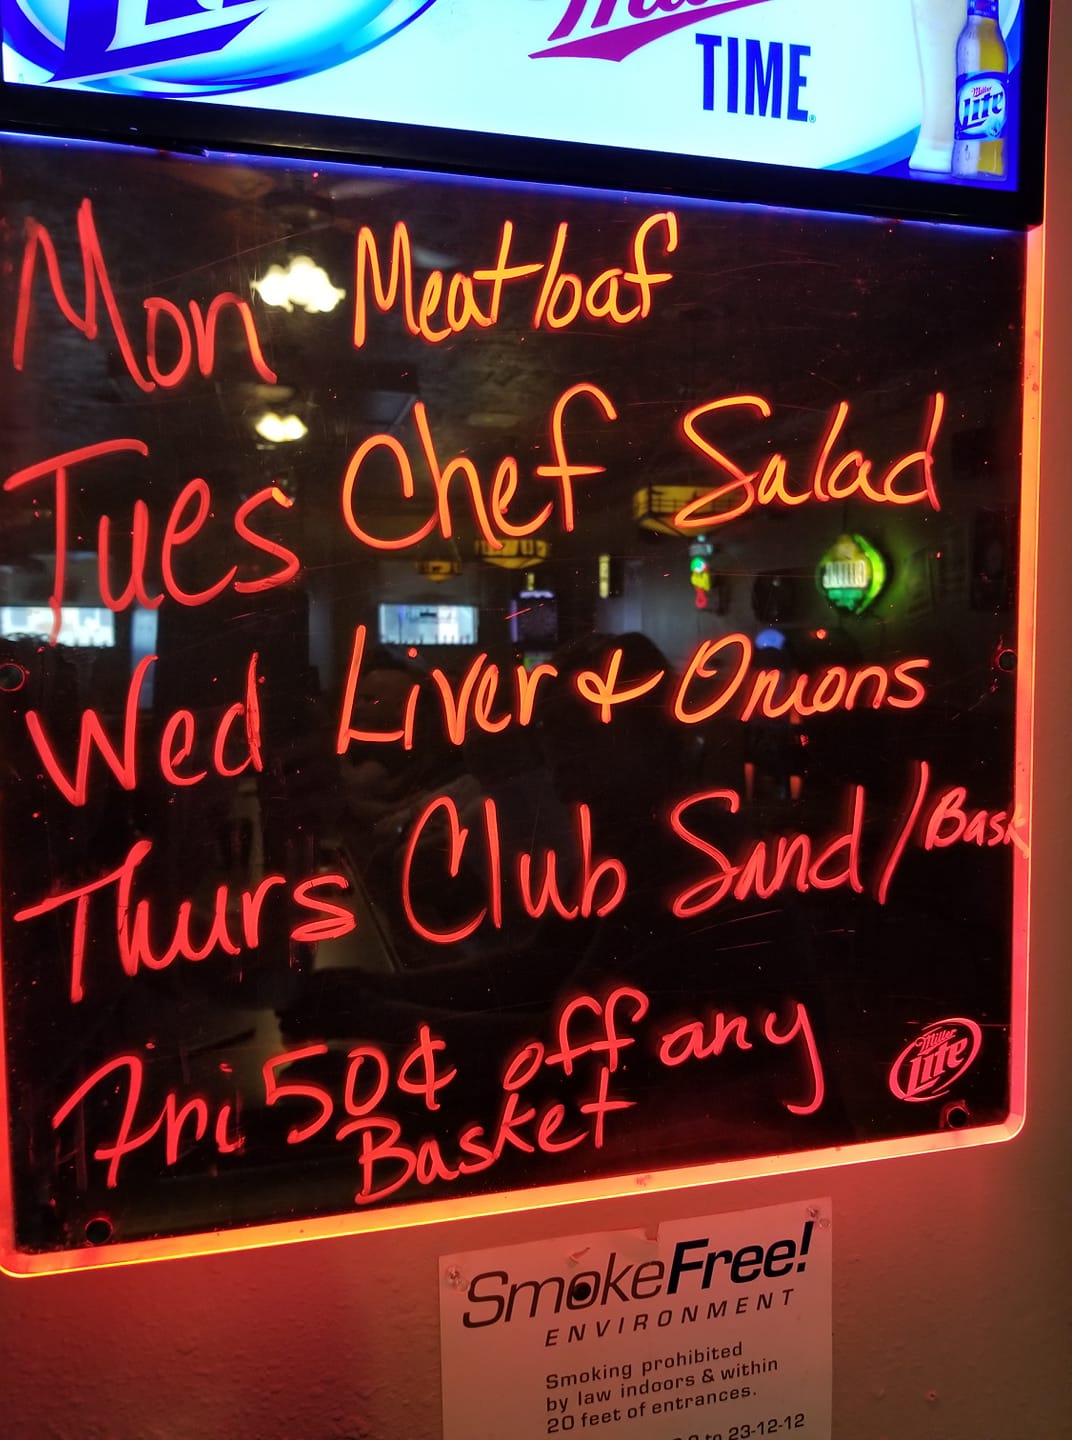 TIME
Miller
Lite
Mon Meatloaf
Tues Chef Salad
Wed Liver & Onions
Thurs Club Sand / Bask
Fri 50¢ off any
Basket
Miller
Lite
SmokeFree!
ENVIRONMENT
Smoking prohibited
by law indoors & within
20 feet of entrances.
to 23-12-12